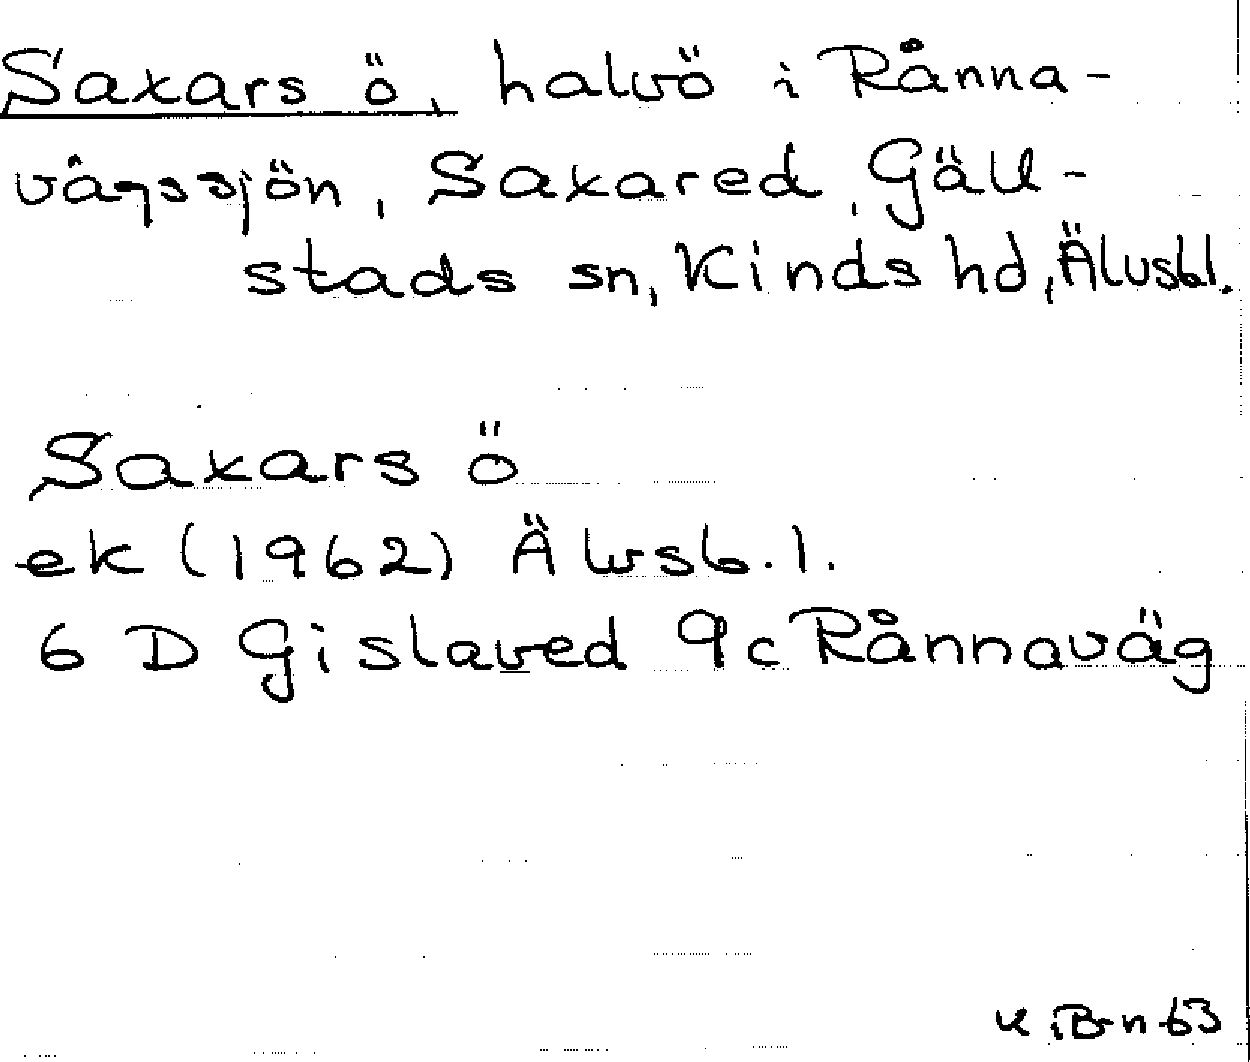 Saxars ö, halvö i Rånna-
vågssjön, Saxared, Gäll-
stads sn, Kinds hd, Älvsbl.
Saxars ö
ek (1962) Älvsb.l.
6 D Gislaved 9c Rånnaväg
63